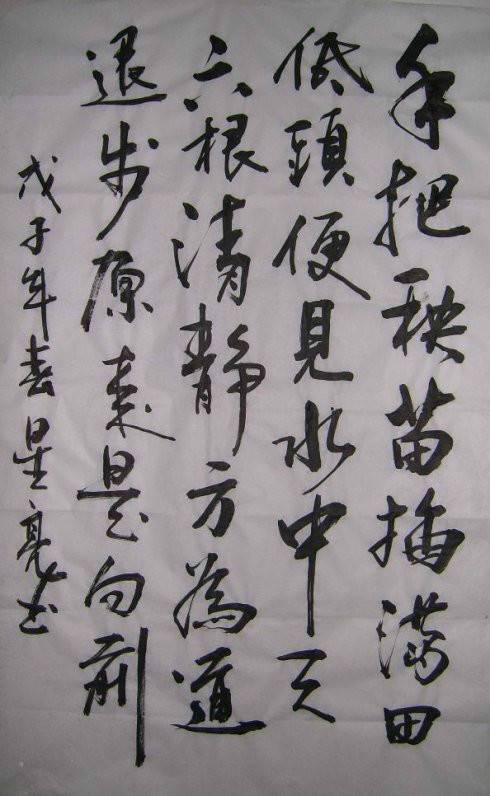 手把秧苗插满田
低頭便見水中天
六根清静方為道
退步原来是向前
戊子年春星亮书